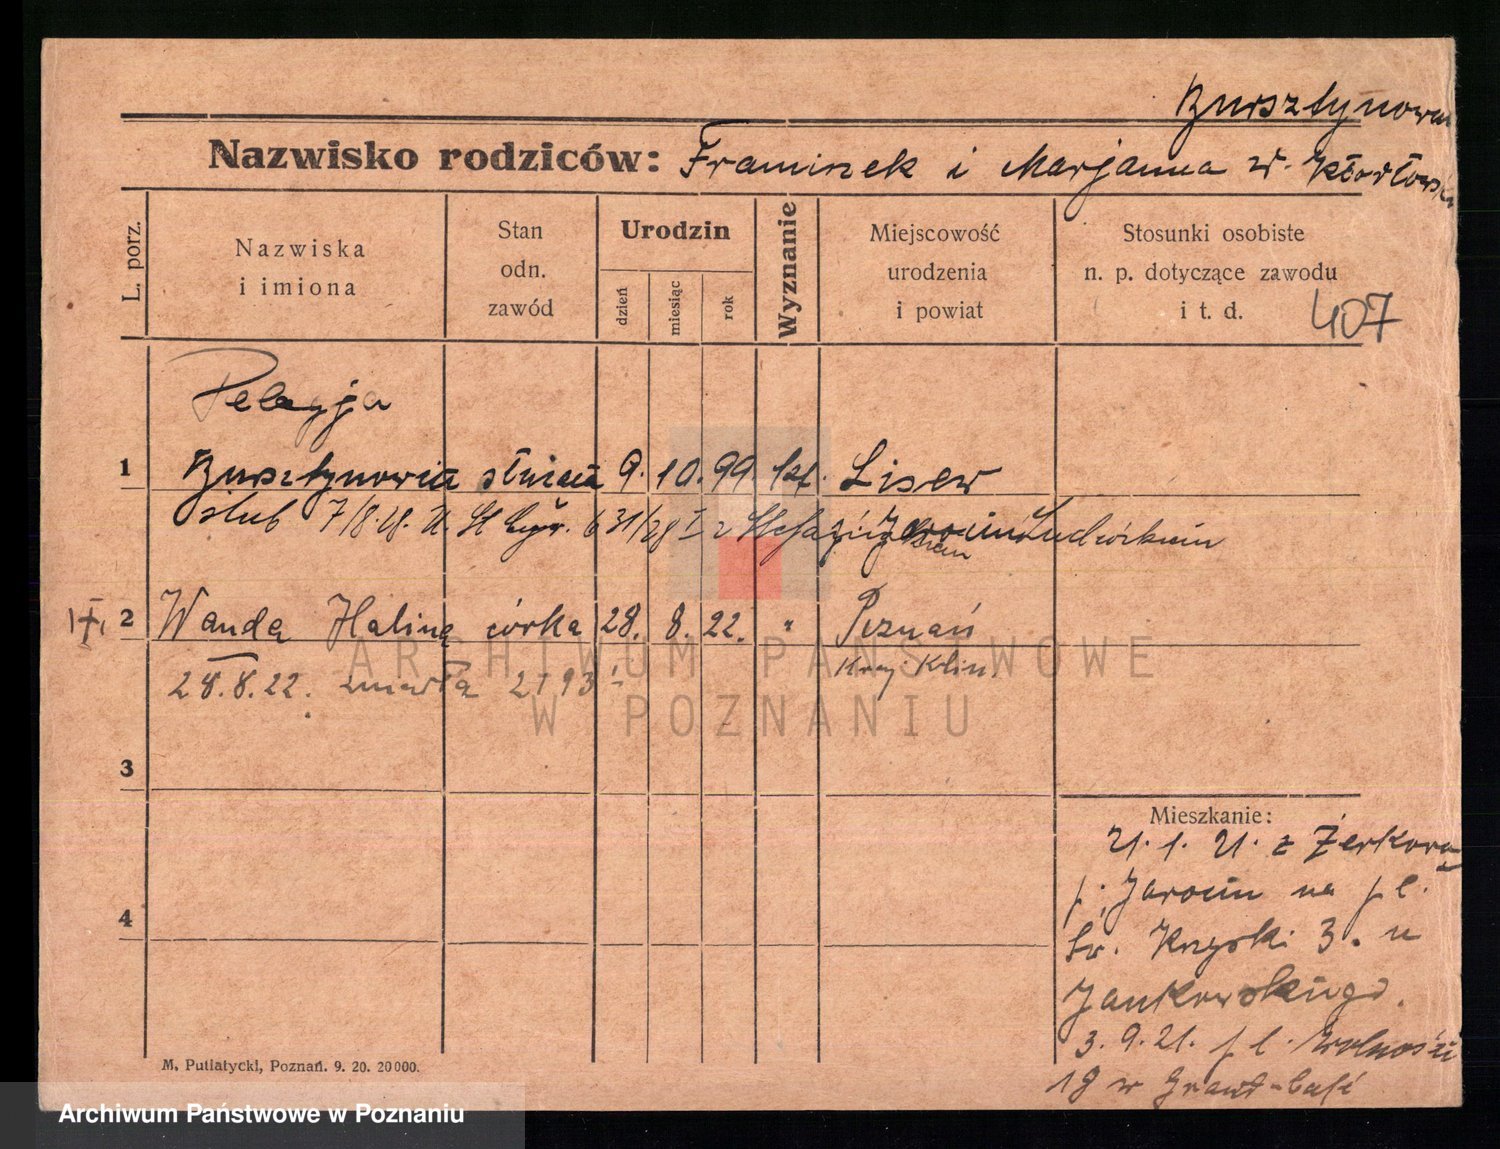 Bursztynowna
Nazwisko rodziców: Franciszek i Marjanna z
L. porz.
Nazwiska i imiona
Stan odn. zawód
Urodzin
dzień
miesiąc
rok
Wyznanie
Miejscowość urodzenia i powiat
Stosunki osobiste n. p. dotyczące zawodu i t. d.
407
Pelagja
1 9. 10. 99. kat. Lisew
ślub 7/8.28. 31/28 Ludwikiem
2 Wanda Halina córka 28. 8. 22. " Poznań
28.8.22. zmarła Klin.
3
Mieszkanie:
21. 1. 21. z Żerkowa
p. Jarocin na pl.
4
Św. Krzyski 3. u
Jankowskiego.
3. 9. 21. pl. Wolności
18 w Grand-Café
M. Putiatycki, Poznań. 9. 20. 20000.
ARCHIWUM PAŃSTWOWE
W POZNANIU
Archiwum Państwowe w Poznaniu